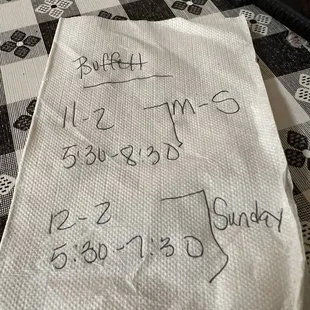 Buffett
11-2 M-S
5:30-8:30
12-2 Sunday
5:30-7:30